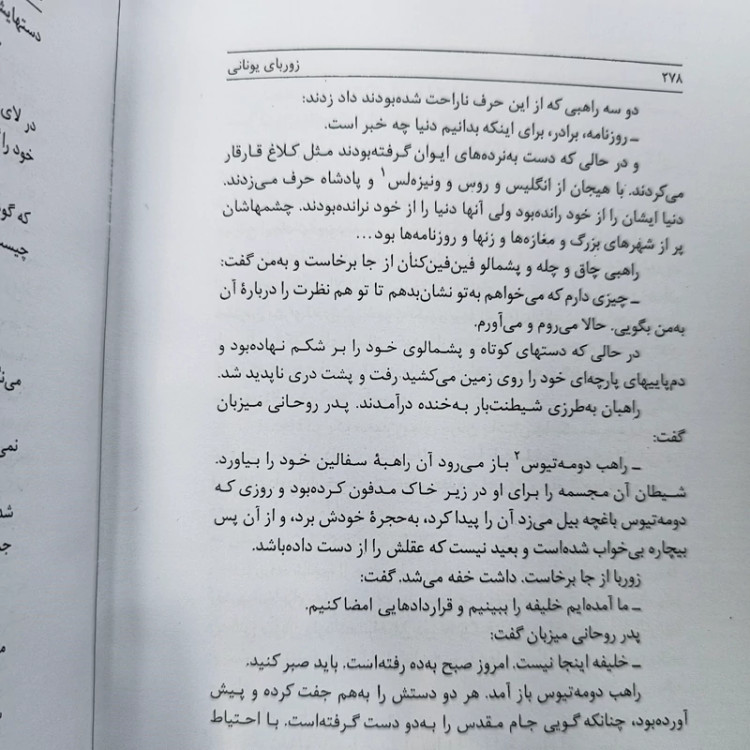 ۲۷۸
زوربای یونانی
دو سه راهبی که از این حرف ناراحت شده‌بودند داد زدند:
ـ روزنامه، برادر، برای اینکه بدانیم دنیا چه خبر است.
و در حالی که دست به‌نرده‌های ایوان گرفته‌بودند مثل کلاغ قارقار
می‌کردند. با هیجان از انگلیس و روس و ونیزه‌لس۱ و پادشاه حرف می‌زدند.
دنیا ایشان را از خود رانده‌بود ولی آنها دنیا را از خود نرانده‌بودند. چشمهاشان
پر از شهرهای بزرگ و مغازه‌ها و زنها و روزنامه‌ها بود...
راهبی چاق و چله و پشمالو فین‌فین‌کنان از جا برخاست و به‌من گفت:
ـ چیزی دارم که می‌خواهم به‌تو نشان‌بدهم تا تو هم نظرت را دربارهٔ آن
به‌من بگویی. حالا می‌روم و می‌آورم.
در حالی که دستهای کوتاه و پشمالوی خود را بر شکم نهاده‌بود و
دم‌پاییهای پارچه‌ای خود را روی زمین می‌کشید رفت و پشت دری ناپدید شد.
راهبان به‌طرزی شیطنت‌بار به‌خنده درآمدند. پدر روحانی میزبان
گفت:
ـ راهب دومه‌تیوس۲ باز می‌رود آن راهبهٔ سفالین خود را بیاورد.
شیطان آن مجسمه را برای او در زیر خاک مدفون کرده‌بود و روزی که
دومه‌تیوس باغچه بیل می‌زد آن را پیدا کرد، به‌حجرهٔ خودش برد، و از آن پس
بیچاره بی‌خواب شده‌است و بعید نیست که عقلش را از دست داده‌باشد.
زوربا از جا برخاست. داشت خفه می‌شد. گفت:
ـ ما آمده‌ایم خلیفه را ببینیم و قراردادهایی امضا کنیم.
پدر روحانی میزبان گفت:
ـ خلیفه اینجا نیست. امروز صبح به‌ده رفته‌است. باید صبر کنید.
راهب دومه‌تیوس باز آمد. هر دو دستش را به‌هم جفت کرده و پیش
آورده‌بود، چنانکه گویی جام مقدس را به‌دو دست گرفته‌است. با احتیاط
در لای
خود را
که گو
چیس
نمی